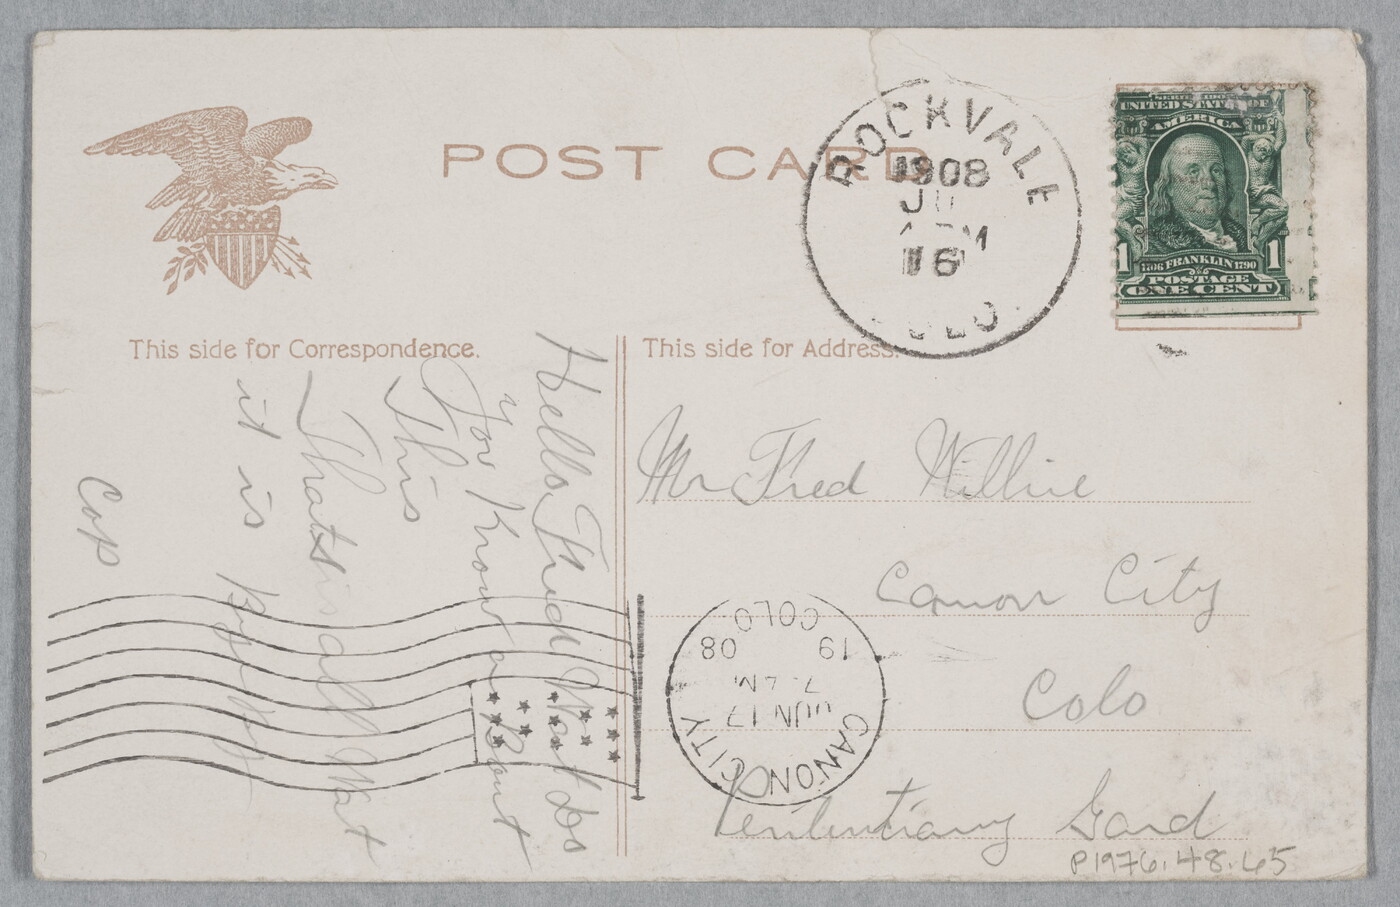 POST CARD
ROCKVALE
1908
JU
PM
16
OLO
SERIES 1902
UNITED STATES OF
AMERICA
1 1
1706 FRANKLIN 1790
POSTAGE
ONE CENT
This side for Correspondence.
Hello Fred What do
you Know a Bout
This
Thats all Wat
it is
Cop
This side for Address.
Mr Fred Willie
Canon City
Colo
Penitentiary Gard
CANON CITY
JUN 17
7 AM
19 08
COLO.
P1976.48.65